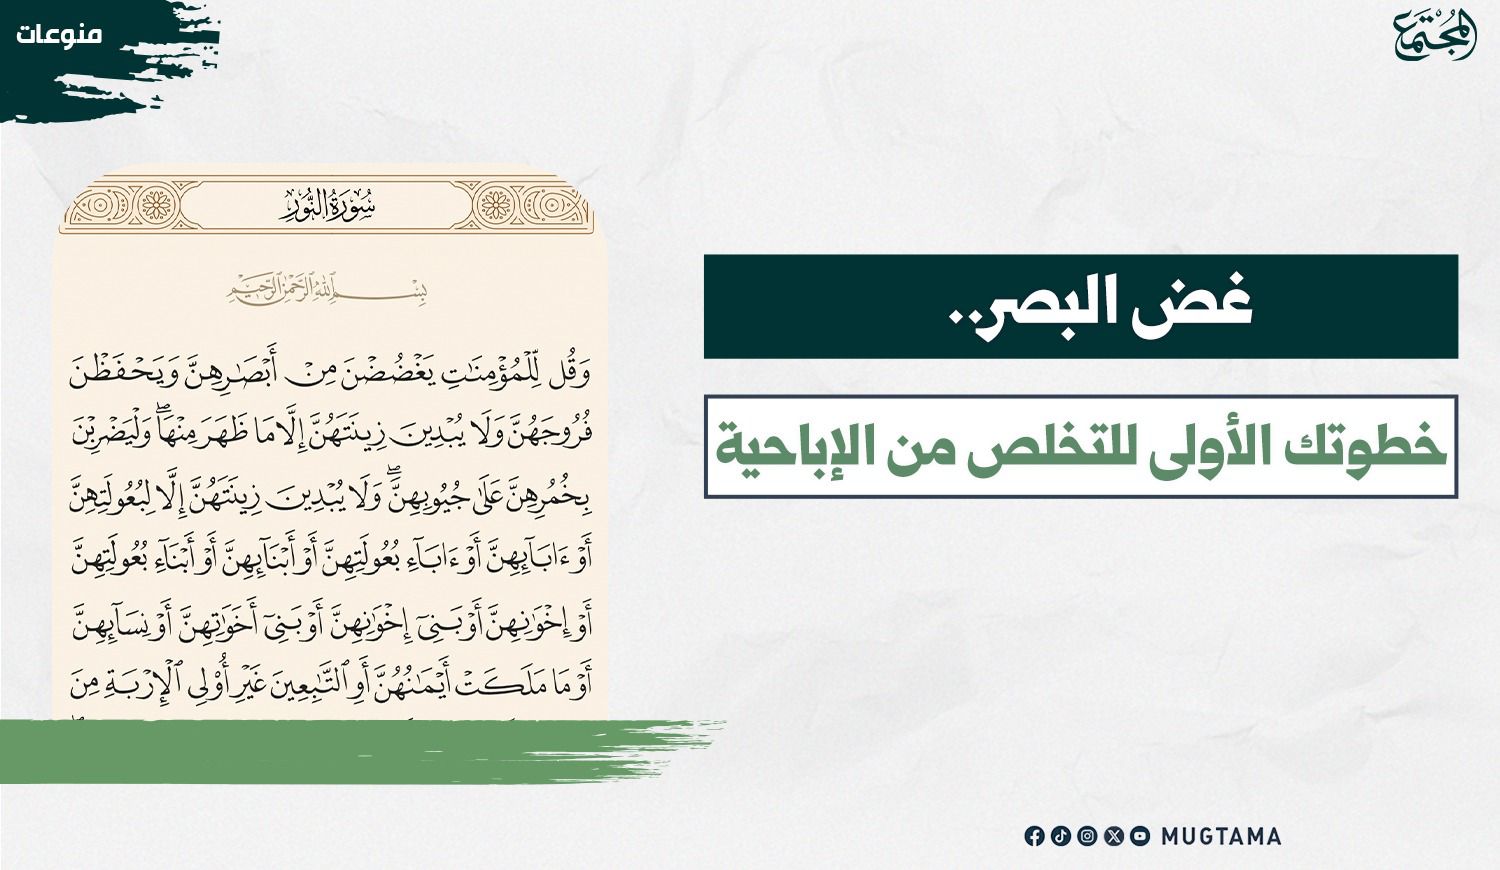 منوعات
المجتمع
سُورَةُ النُّورِ
بِسْمِ ٱللَّهِ ٱلرَّحْمَٰنِ ٱلرَّحِيمِ
وَقُل لِّلْمُؤْمِنَٰتِ يَغْضُضْنَ مِنْ أَبْصَٰرِهِنَّ وَيَحْفَظْنَ
فُرُوجَهُنَّ وَلَا يُبْدِينَ زِينَتَهُنَّ إِلَّا مَا ظَهَرَ مِنْهَا ۖ وَلْيَضْرِبْنَ
بِخُمُرِهِنَّ عَلَىٰ جُيُوبِهِنَّ ۖ وَلَا يُبْدِينَ زِينَتَهُنَّ إِلَّا لِبُعُولَتِهِنَّ
أَوْ ءَابَآئِهِنَّ أَوْ ءَابَآءِ بُعُولَتِهِنَّ أَوْ أَبْنَآئِهِنَّ أَوْ أَبْنَآءِ بُعُولَتِهِنَّ
أَوْ إِخْوَٰنِهِنَّ أَوْ بَنِىٓ إِخْوَٰنِهِنَّ أَوْ بَنِىٓ أَخَوَٰتِهِنَّ أَوْ نِسَآئِهِنَّ
أَوْ مَا مَلَكَتْ أَيْمَٰنُهُنَّ أَوِ ٱلتَّٰبِعِينَ غَيْرِ أُو۟لِى ٱلْإِرْبَةِ مِنَ
غض البصر..
خطوتك الأولى للتخلص من الإباحية
MUGTAMA